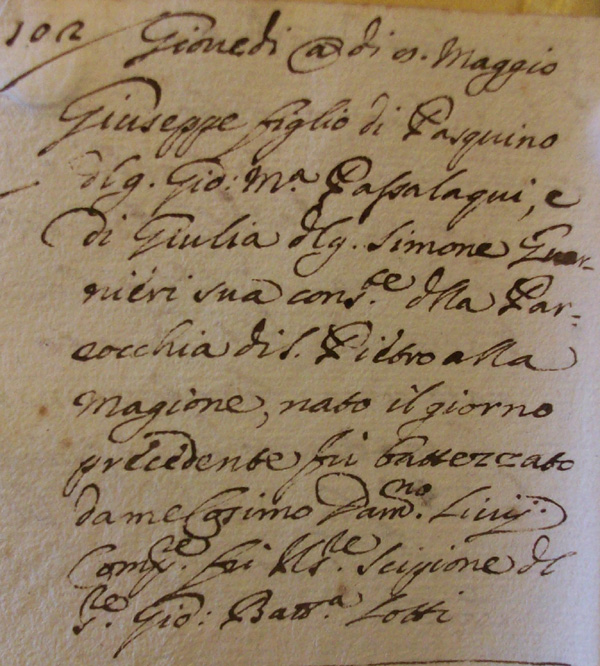 102 Giovedi a di 9. Maggio
Giuseppe figlio di Pasquino
dlg. Gio: M.a Passalaqui, e
di Giulia dlg. Simone Guar-
nieri sua cons.te dlla Par-
rocchia di S. Pietro alla
Magione, nato il giorno
precedente fù battezzato
da me Cosimo Dam.no Livij.
Comp.e fù Ill.re Scipione dl
S.re Gio: Batt.a Lotti